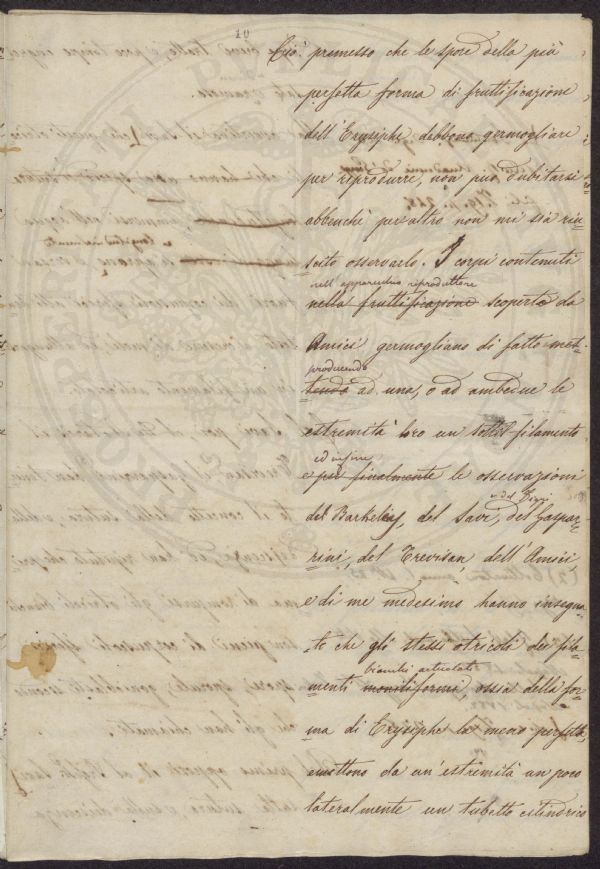 10
Ciò premesso che le spore della più
perfetta forma di fruttificazione
dell'Erysiphe debbono germogliare
per riprodurre, non può dubitarsi
abbenchè per altro non mi sia riu=
scito osservarlo. I corpi contenuti
nell'apparecchio riproduttore
nella fruttificazione scoperta da
Amici germogliano di fatto met=
producendo
tendo ad una, o ad ambedue le
estremità loro un sottil filamento
ed infine
e più finalmente le osservazioni
e del Tozzi
del Barkeley, del Savi, del Gaspar=
rini, del Trevisan, dell'Amici,
e di me medesimo hanno insegna=
to che gli stessi otricoli dei fila=
bianchi articolati
menti moniliformi ossia della for=
ma di Erysiphe la meno perfetta,
emettono da un'estremità un poco
lateralmente un tubetto cilindrico